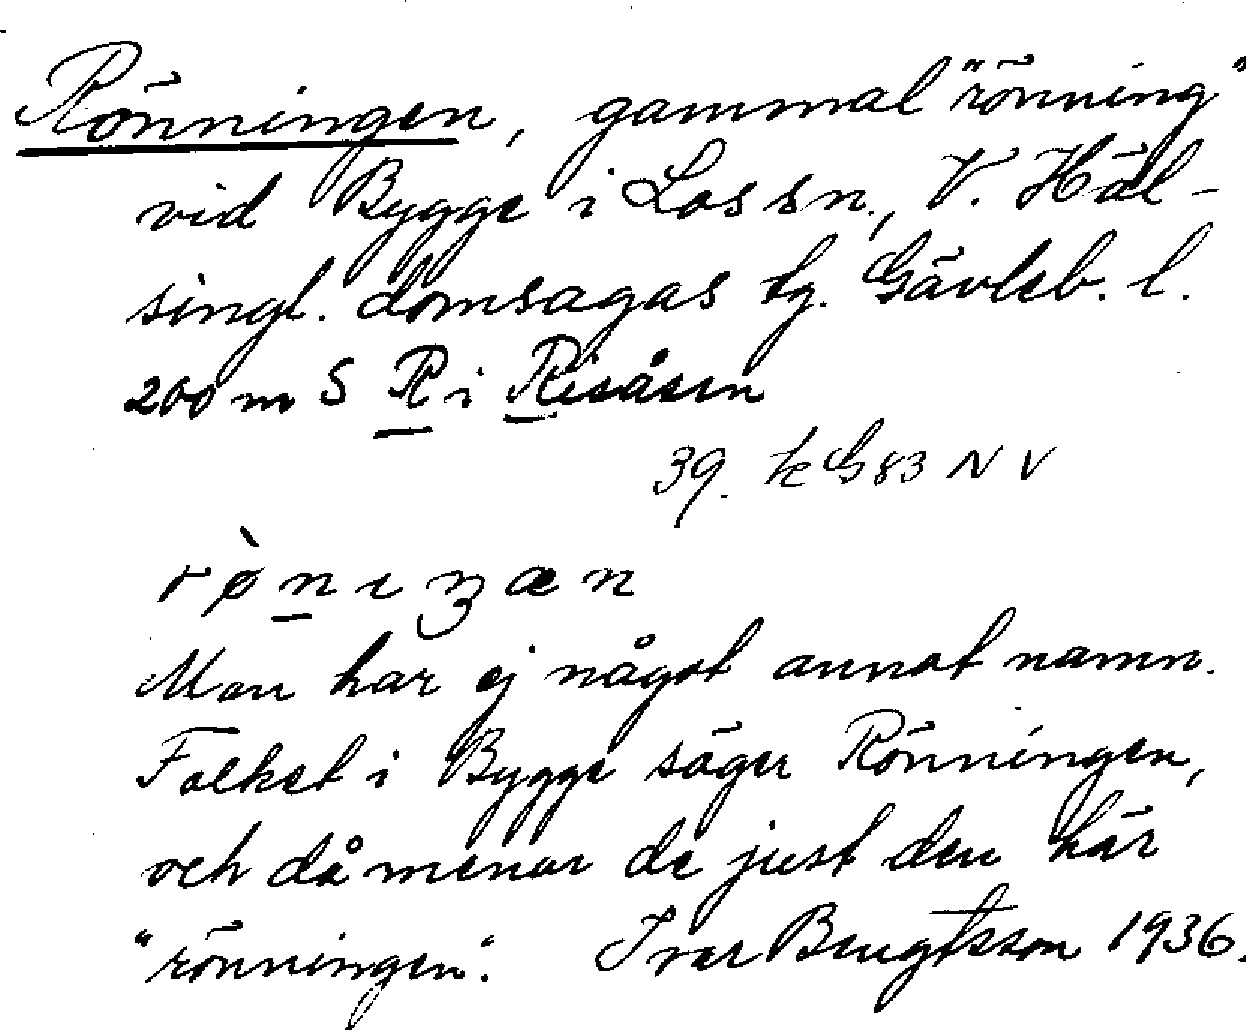 Rönningen, gammal "rönning"
vid Bygge i Los sn., V. Häl-
singl. domsagas tg. Gävleb. l.
200 m S R i Risåsen
39. k G 83 N V
rø̀nıŋæn
Man har ej något annat namn.
Folket i Bygge säger Rönningen,
och då menar de just den här
"rönningen". Ivar Bengtsson 1936.